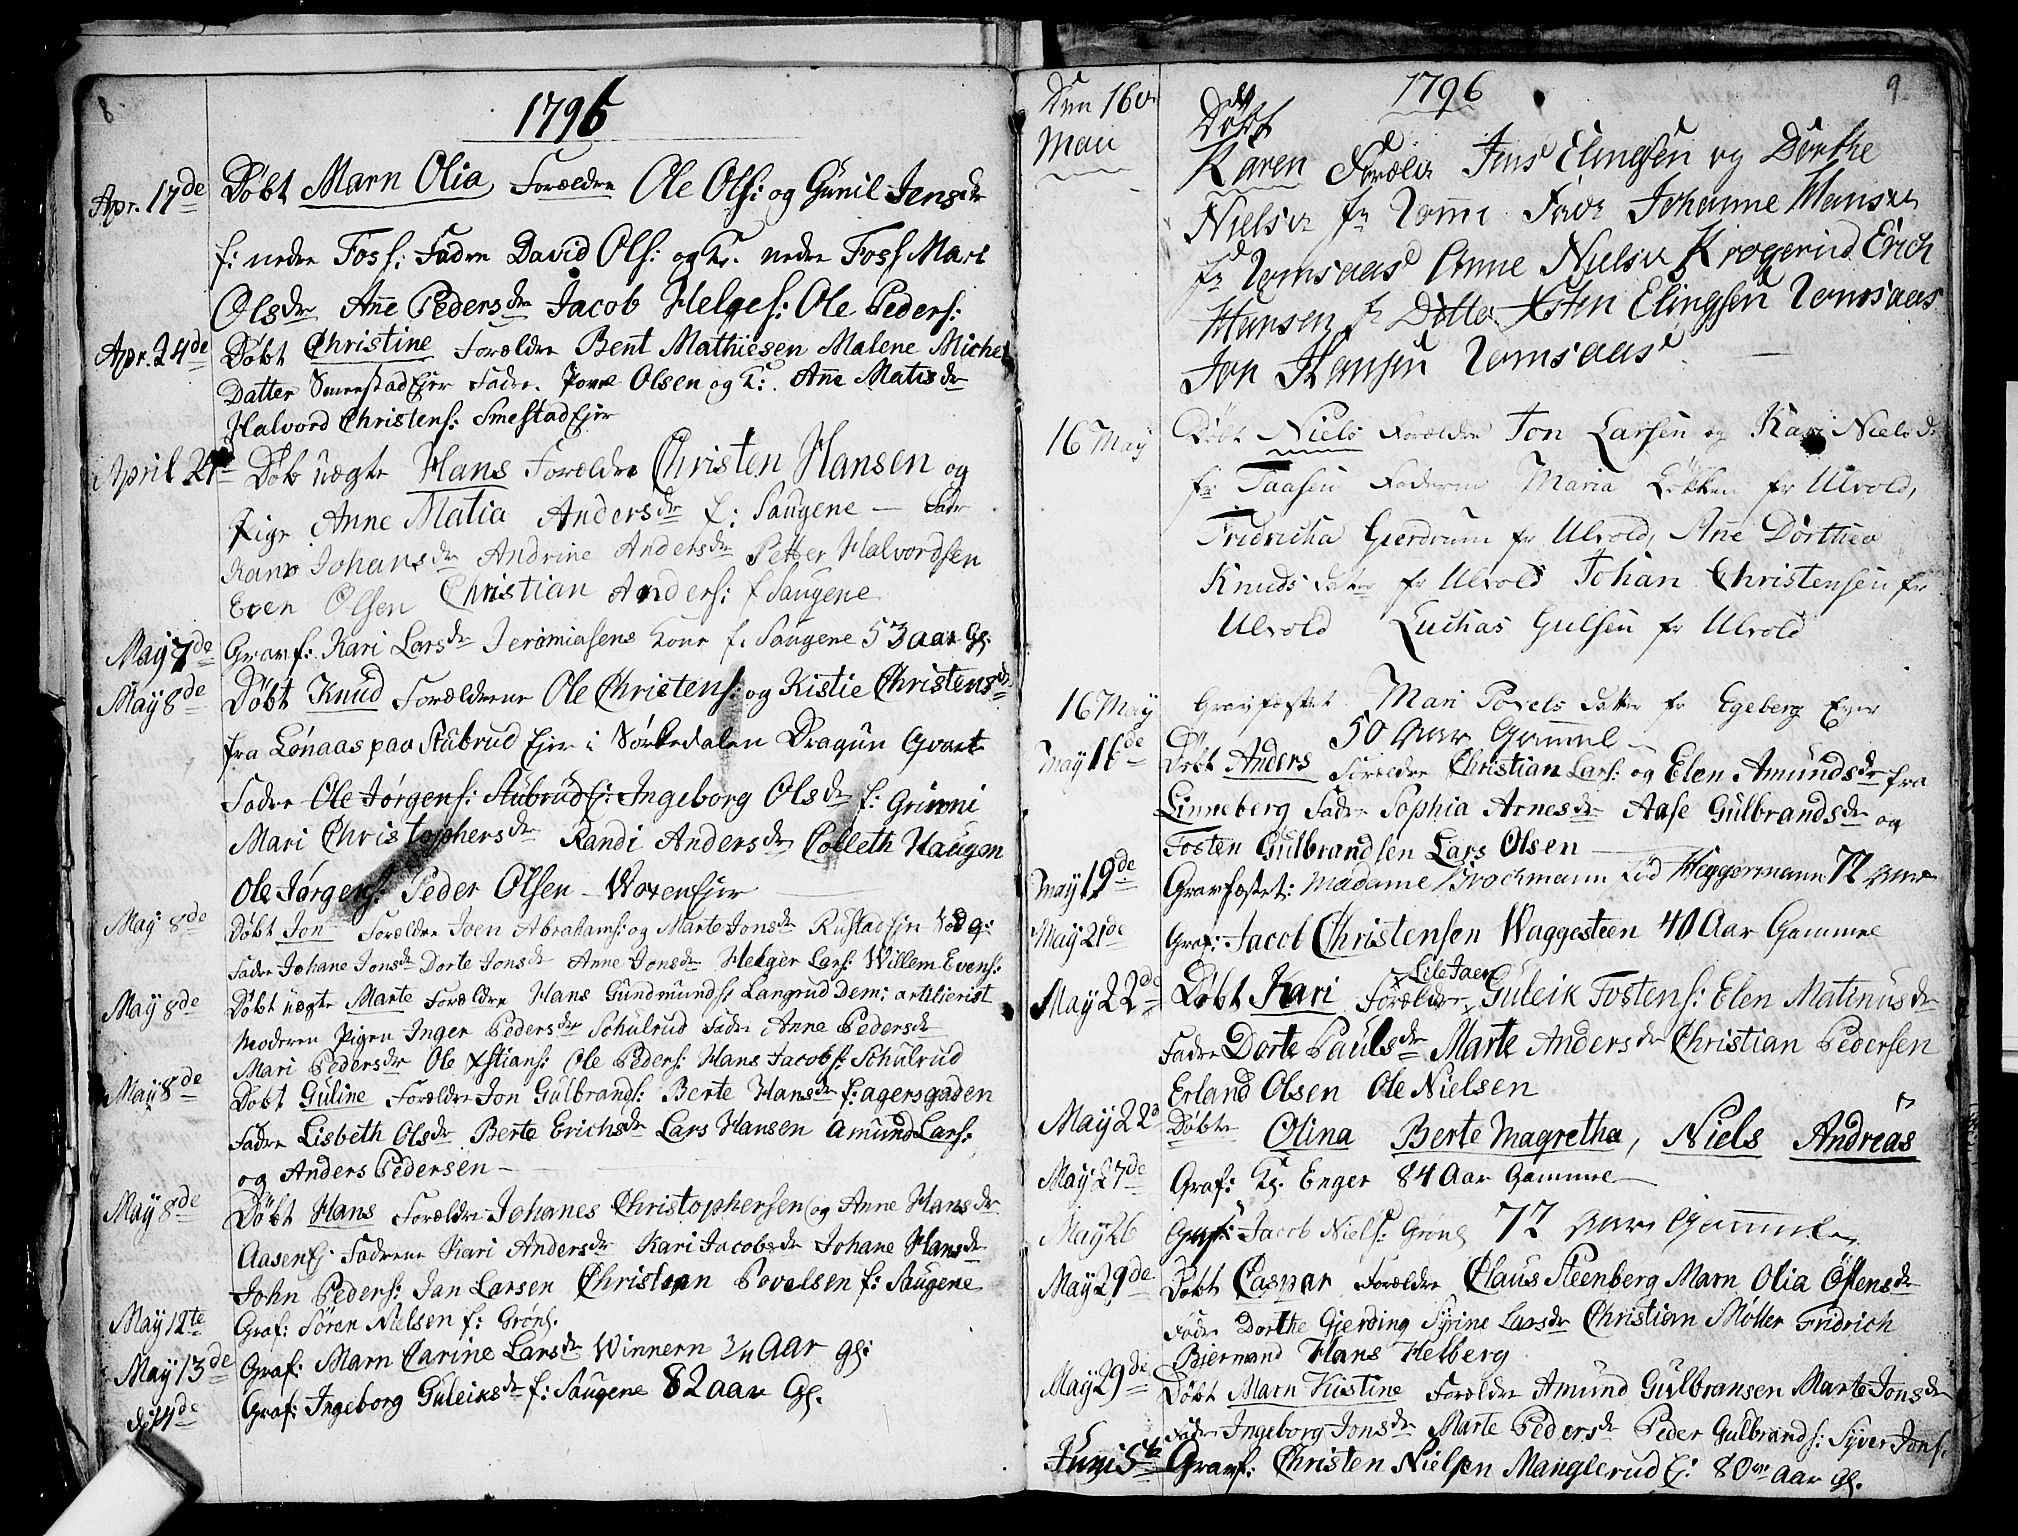 8
1796
Apr. 17de Døbt Marn Olia Forældre Ole Ols: og Gunil Jensdr
f: nedre Foss: Fadre David Ols: og K. nedre Foss Mari
Olsdr Añe Pedersdr Jacob Helges: Ole Peders:
Apr. 24de Døbt Christine Forældre Bent Mathiesen Malene Michel
Datter Smestad Ejer Fadre Povel Olsen og K: Añe Matisdr
Halvord Christens: Smestad Ejer
April 24de Døb uægte Hans Forældre Christen Hansen og
Pige Anne Matia Andersdr f: Saugene – Fadr
Johansdr Andrine Andersdr Petter Halvordsen
Even Olsen Christian Anders: f Saugene
May 7de Gravf: Kari Larsdr Jeromiasens Kone f: Saugene 53 aar Gl:
May 8de Døbt Knud Forældrene Ole Christens: og Kistie Christensdr
fra Lønaas paa Stubrud Ejer i Sørkedalen Dragun Gvart
Fadre Ole Jørgens: Stubruds: Ingeborg Olsdr f: Grinni
Mari Christophersdr Randi Andersdr Colleth Haugen
Ole Jørgens: Peder Olsen – Voxen Ejer
May 8de Døbt Jon Forældre Joen Abrahams: og Marte Jonsdr Rustad Ejer
Fadre Johane Jonsdr Dorte Jonsdr Anne Jonsdr Helger Lars: Willem Evens:
May 8de Døbt uægte Marte Forældre Hans Gundmunds: Langrud Dem: artilierist
Moderen Pigen Inger Pedersdr Schulrud Fadre Anne Pedersdr
Mari Pedersdr Ole Xstians: Ole Peders: Hans Jacobs: Schulrud
May 8de Døbt Guline Forældre Jon Gulbrands: Berte Hansdr f: agersgaden
Fadre Lisbeth Olsdr Berte Erichsdr Lars Hansen Amund Lars:
og Anders Pedersen –
May 8de Døbt Hans Forældre Johanes Christophersen og Anne Hansdr
Aasen Ej Fadrene Kari Andersdr Kari Jacobsdr Johane Hansdr
John Peders: Jan Larsen Christian Povelsen f: Saugene
May 12te Graf: Søren Nielsen f: Grønl.
May 13de Graf: Marn Carine Larsdr Winnern 3/4 Aar gl:
d: 14de Graf: Ingeborg Guleiksdr f: Saugene 82 aar Gl.
9
1796
Den 16de Maii
Døbt
Karen Foreldr Jens Elingsen og Dorthe
Nielsdr fr Fadr Johanne Hansdr
fr Romsaas Anne Nielsdr Krogerud Erich
Hansen fr Ditto Xsten Elingsen Romsaas
Jon Hansen Romsaas
16 May Døbt Niels Forældre Jon Larsen og Kari Nielsdr
fr Taasen Faderne Maria Løkken fr Ulvold,
Fridricha Gierdrum fr Ulvold, Añe Dorthea
Knuds Datter fr Ulvold Johan Christensen fr
Ulvold Luchas Gulsen fr Ulvold
16 May Gravfæstet Mari Povels Datter fr Egeberg Eyer
50 Aar Gam̄el
May 16de Døbt Anders Forældre Christian Lars: og Elen Amundsdr fra
Linneberg Fadre Sophia Arnesdr Aase Gulbrandsdr og
Tosten Gulbrandsen Lars Olsen
May 19de Gravfæstet: Madame Brochmann fød Heggermann 72 Aar
May 21de Graf: Jacob Christensen Waggesteen 40 Aar Gammel
Lile Jaer
May 22de Døbt Kari Forældre Guleik Tostens: Elen Matinusdr
Fadre Dorte Paulsdr Marte Andersdr Christian Pedersen
Erland Olsen Ole Nielsen
May 22d Døbte Olina Berte Magretha, Niels Andreas
May 27de Graf: K. Enger 84 Aar Gammel
May 26 Graf: Jacob Niels: Grønl 72 Aar Gammel
May 29de Døbt Caspar Forældre Claus Steenberg Marn Olia Østensdr
Fadre Dorthe Gjerding Syrine Larsdr Christian Møller Fridrich
Biermand Hans Helberg
May 29de Døbt Marn Kistine Forældre Amund Gulbransen Marte Jonsdr
Fadre Ingeborg Jonsdr Marte Pedersdr Peder Gulbrands: Syver Jons:
Juni 5te Gravf: Christen Nielsen Manglerud E: 80 Aar gl.